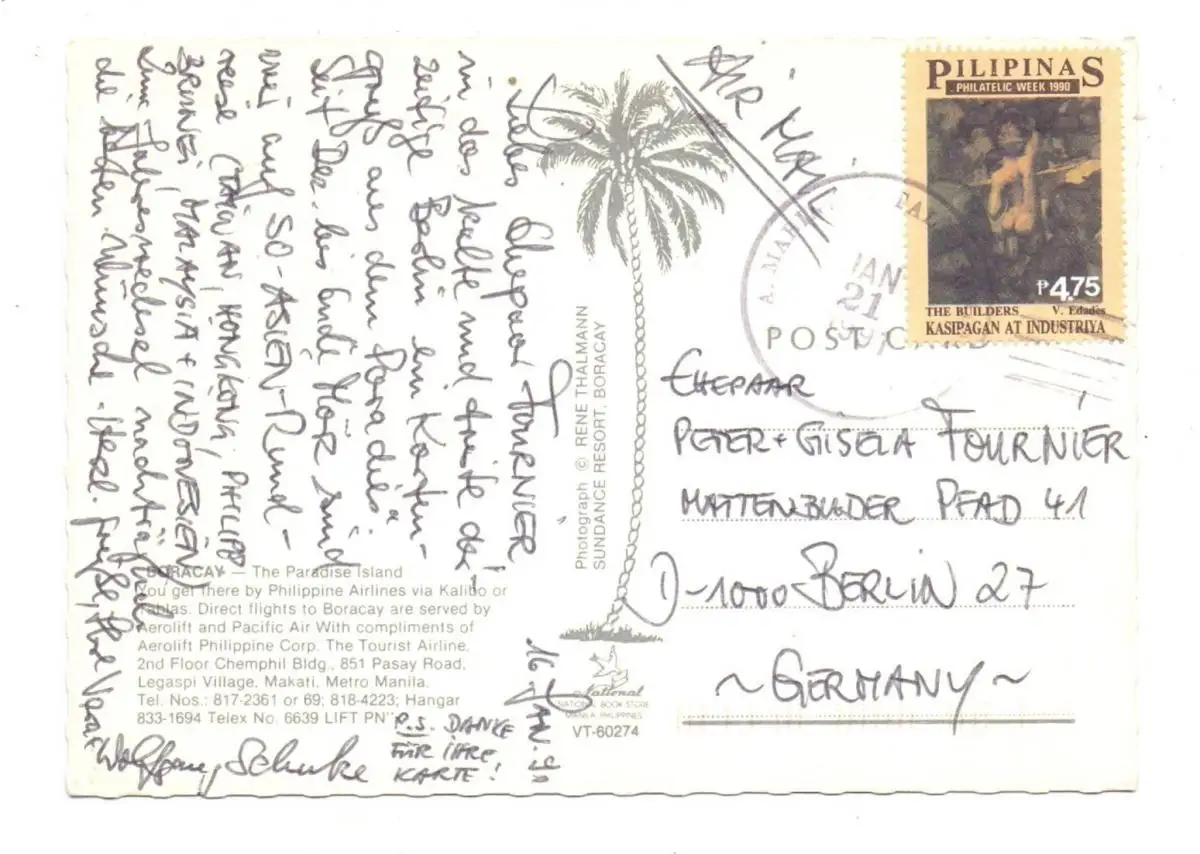 Liebes Ehepaar FOURNIER!
in das kalte und triste der-
zeitige Berlin ein Karten-
gruß aus dem Paradies:
Seit Dez. bis Ende MÄR sind
wir auf SO-ASIEN-Rund-
reise (TAIWAN, HONGKONG, PHILIPP
BRUNEI, MALAYSIA + INDONESIEN)
Zum Jahreswechsel nachträglich
die guten Wünsche. Herzl. Grüße, Ihr
Wolfgang Schuke
16. JAN. 91
P.S. DANKE
FÜR IHRE
KARTE!
BORACAY — The Paradise Island
You get there by Philippine Airlines via Kalibo or
Tablas. Direct flights to Boracay are served by
Aerolift and Pacific Air With compliments of
Aerolift Philippine Corp. The Tourist Airline.
2nd Floor Chemphil Bldg., 851 Pasay Road,
Legaspi Village, Makati, Metro Manila.
Tel. Nos.: 817-2361 or 69; 818-4223; Hangar
833-1694 Telex No. 6639 LIFT PN"
Photograph © RENE THALMANN
SUNDANCE RESORT, BORACAY
National
NATIONAL BOOK STORE
MANILA, PHILIPPINES
VT-60274
AIR MAIL
PILIPINAS
PHILATELIC WEEK 1990
₱4.75
THE BUILDERS V. Edades
KASIPAGAN AT INDUSTRIYA
JAN
21
POST CARD
EHEPAAR
PETER + GISELA FOURNIER
MATTENBUDER PFAD 41
D-1000 BERLIN 27
~ GERMANY ~